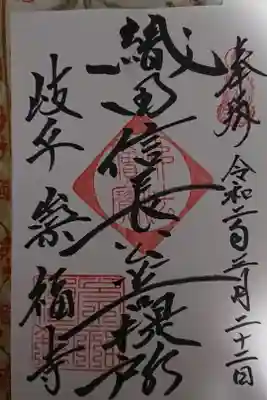 奉拝 令和二年三月二十二日
織田信長公菩提所
岐阜 崇福寺